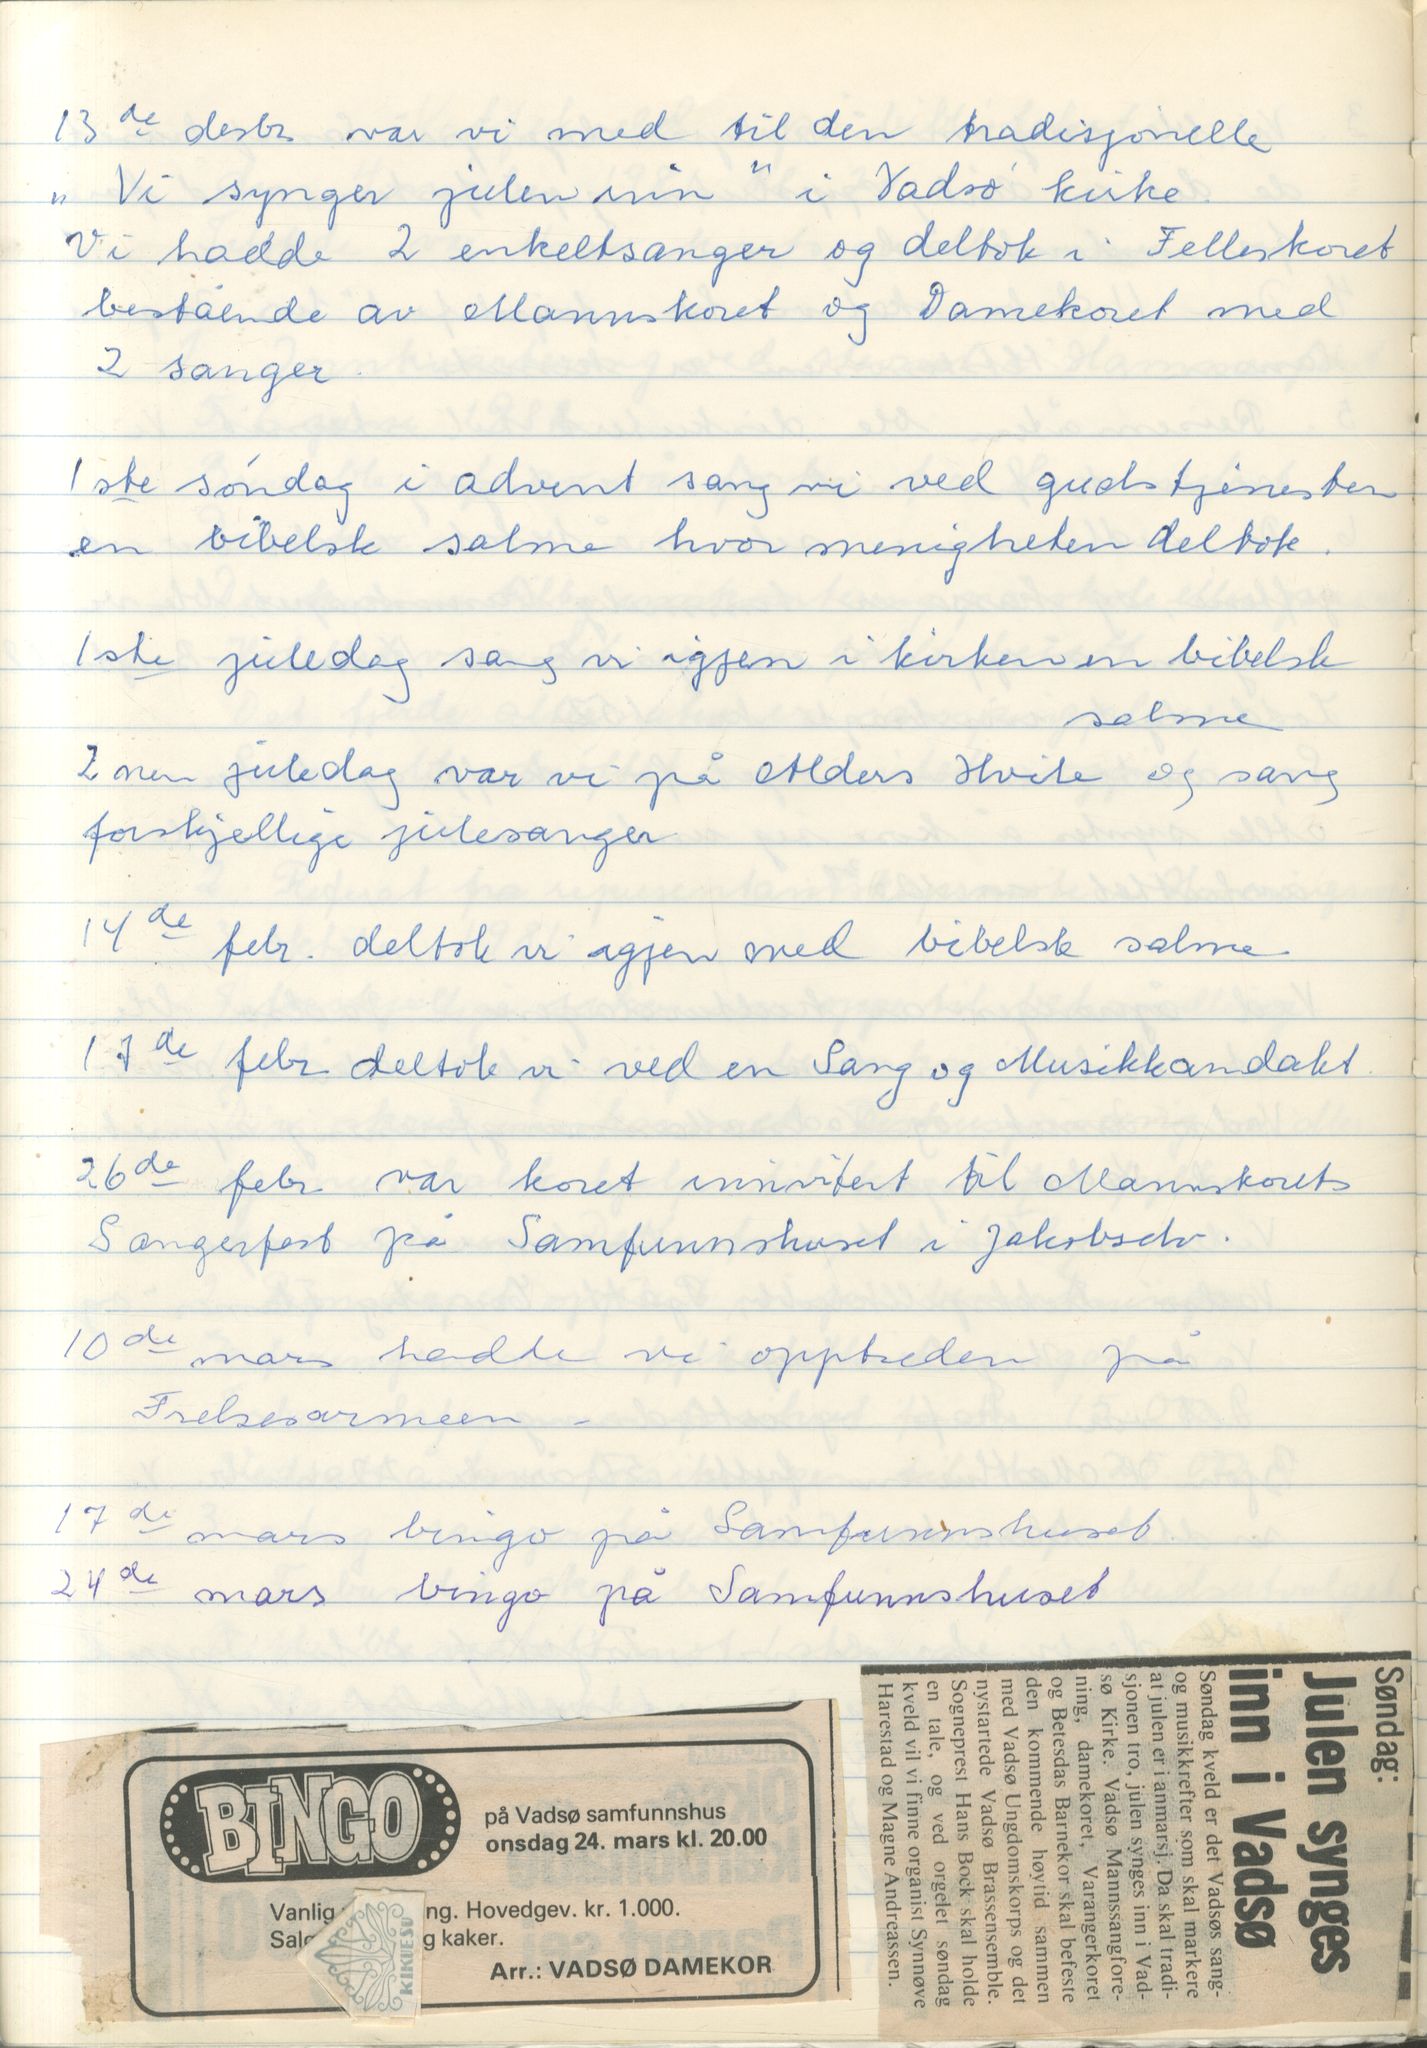 13de desbr var vi med til den tradisjonelle
„Vi synger julen inn" i Vadsø kirke.
Vi hadde 2 enkeltsanger og deltok i Felleskoret
bestående av Mannskoret og Damekoret med
2 sanger.
1ste søndag i advent sang vi ved gudstjenesten
en bibelsk salme hvor menigheten deltok.
1ste juledag sang vi igjen i kirken en bibelsk
salme
2nen juledag var vi på Alders Hvile og sang
forskjellige julesanger
14de febr. deltok vi igjen med bibelsk salme
17de febr deltok vi ved en Sang og Musikkandakt.
26de febr var koret innvitert til Mannskorets
Sangerfest på Samfunnshuset i Jakobselv.
10de mars hadde vi opptreden på
Frelsesarmeen –
17de mars bingo på Samfunnshuset.
24de mars bingo på Samfunnshuset
BINGO
på Vadsø samfunnshus
onsdag 24. mars kl. 20.00
Vanlig ng. Hovedgev. kr. 1.000.
Salg g kaker.
Arr.: VADSØ DAMEKOR
Søndag:
Julen synges
inn i Vadsø
Søndag kveld er det Vadsøs sang-
og musikkrefter som skal markere
at julen er i anmarsj. Da skal tradi-
sjonen tro, julen synges inn i Vad-
sø Kirke. Vadsø Mannssangfore-
ning, damekoret, Varangerkoret
og Betesdas Barnekor skal befeste
den kommende høytid sammen
med Vadsø Ungdomskorps og det
nystartede Vadsø Brassensemble.
Sogneprest Hans Bock skal holde
en tale, og ved orgelet søndag
kveld vil vi finne organist Synnøve
Harestad og Magne Andreassen.